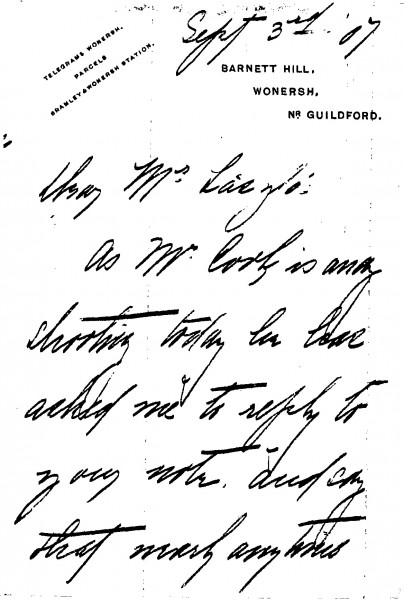 Sept 3rd '07
TELEGRAMS WONERSH.
PARCELS
BRAMLEY & WONERSH STATION.
BARNETT HILL,
WONERSH,
NR GUILDFORD.
Dear Mrs László:
As Mr. Cook is away
shooting today he has
asked me to reply to
your note. and say
that nearly anytime